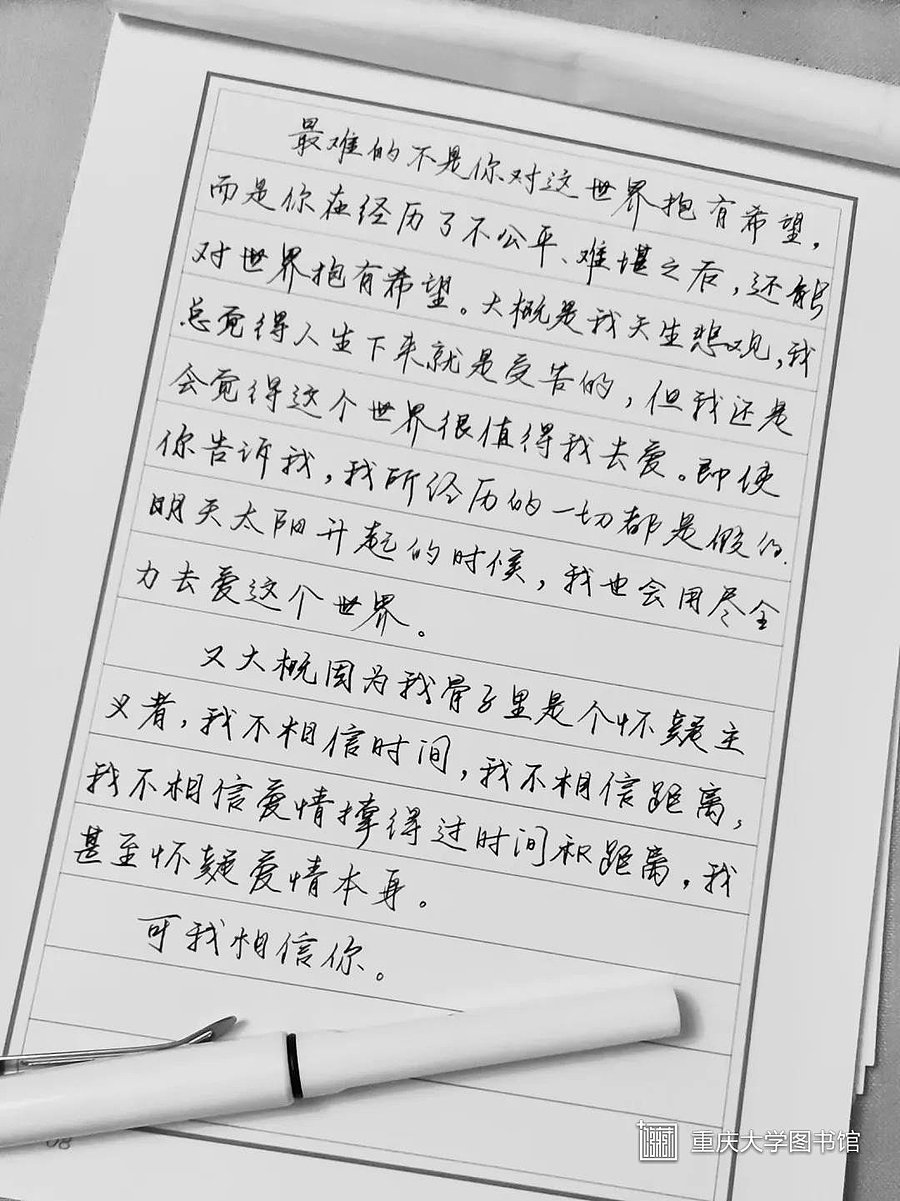 最难的不是你对这世界抱有希望，
而是你在经历了不公平、难堪之后，还能
对世界抱有希望。大概是我天生悲观，我
总觉得人生下来就是受苦的，但我还是
会觉得这个世界很值得我去爱。即使
你告诉我，我所经历的一切都是假的.
明天太阳升起的时候，我也会用尽全
力去爱这个世界。
又大概因为我骨子里是个怀疑主
义者，我不相信时间，我不相信距离，
我不相信爱情撑得过时间和距离，我
甚至怀疑爱情本身。
可我相信你。
重庆大学图书馆